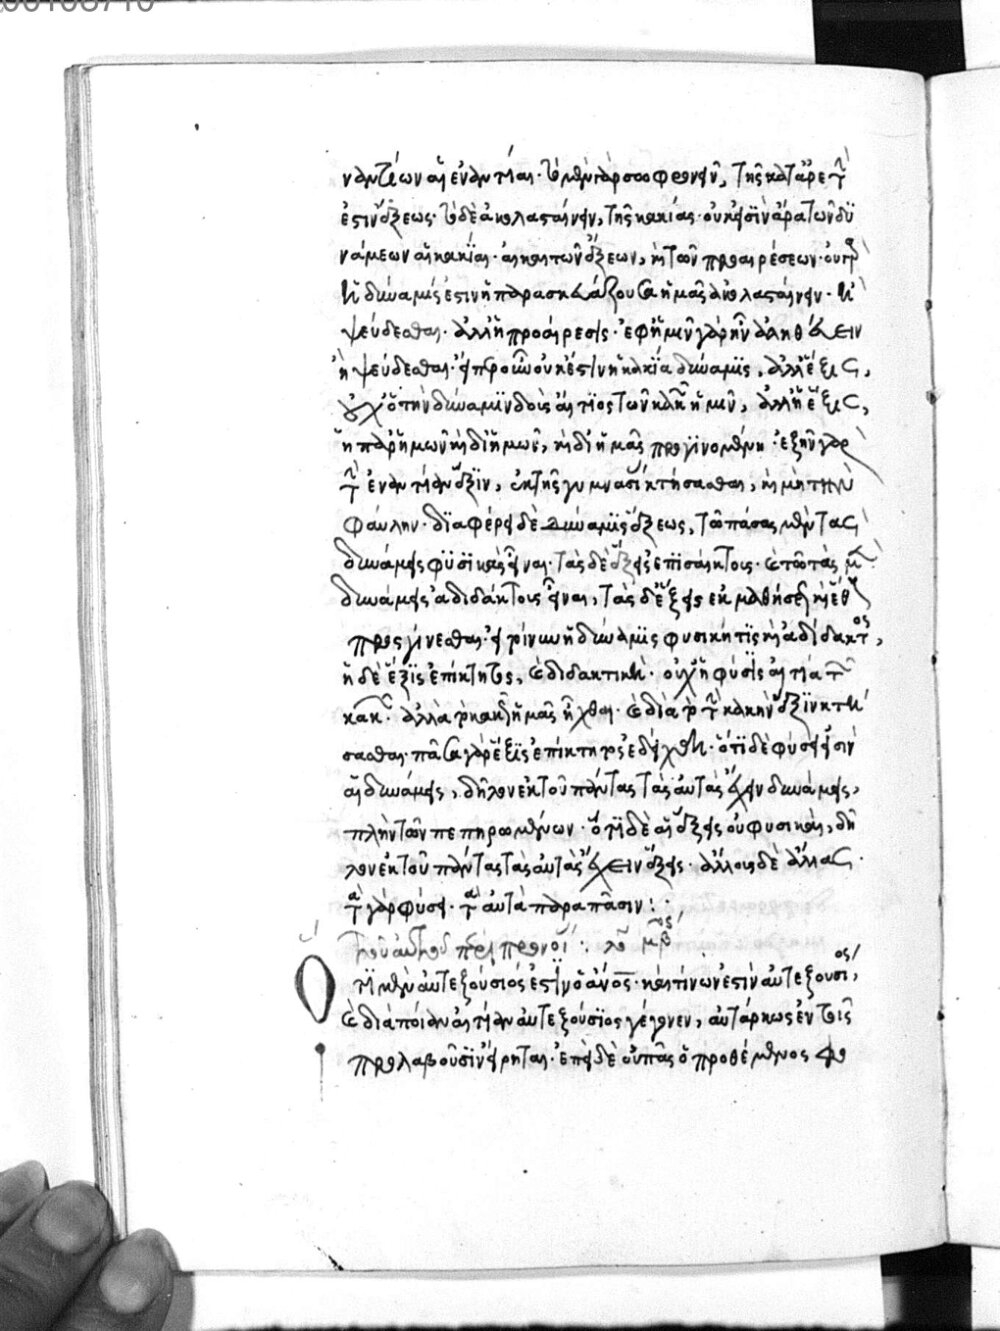 ναντίων αἱ ἐναντίαι· τὸ μὲν γὰρ σωφρονεῖν, τῆς κατ' ἀρετὴν
ἐστὶν ἕξεως· τὸ δὲ ἀκολασταίνειν, τῆς κακίας· οὐκ εἰσὶν ἄρα τῶν δυ
νάμεων αἱ κακίαι· ἀλλὰ τῶν ἕξεων, καὶ τῶν προαιρέσεων· οὐ γὰρ
ἡ δύναμίς ἐστιν ἡ παρασκευάζουσα ἡμᾶς ἀκολασταίνειν· ἢ
ψεύδεσθαι· ἀλλ' ἡ προαίρεσις· ἐφ' ἡμῖν γὰρ ἦν ἀληθεύειν
ἢ ψεύδεσθαι· ἐπεὶ οὖν οὐκ ἔστιν ἡ κακία δύναμις, ἀλλ' ἕξις,
οὐχ ὁ τὴν δύναμιν δοὺς αἴτιος τῶν κακῶν ἡμῖν, ἀλλ' ἡ ἕξις,
ἡ παρ' ἡμῶν καὶ δι' ἡμῶν, καὶ δι' ἡμᾶς προγινομένη· ἐξῆν γὰρ
τὴν ἐναντίαν ἕξιν, ἐκ τῆς γυμνασίας κτήσασθαι, καὶ μὴ τὴν
φαύλην· διαφέρει δὲ δύναμις ἕξεως, τῶ πάσας μὲν τὰς
δυνάμεις φυσικὰς εἶναι· τὰς δὲ ἕξεις ἐπισάκτους· καὶ τῶ τὰς μὲν
δυνάμεις ἀδιδάκτους εἶναι, τὰς δὲ ἕξεις ἐκ μαθήσεως καὶ ἔθους
προσγίνεσθαι· εἰ τοίνυν ἡ δύναμις φυσική τις καὶ ἀδίδακτος,
ἡ δὲ ἕξις ἐπίκτητος, καὶ διδακτική· οὐχ ἡ φύσις αἰτία τῶν
κακῶν· ἀλλὰ τὸ κακῶς ἡμᾶς ἦχθαι· καὶ διὰ τὸ τὴν κακὴν ἕξιν κτή
σασθαι· πᾶσα γὰρ ἕξις ἐπίκτητος ἐδείχθη· ὅτι δὲ φύσει εἰσὶν
αἱ δυνάμεις, δῆλον ἐκ τοῦ πάντας τὰς αὐτὰς ἔχειν δυνάμεις,
πλὴν τῶν πεπηρωμένων· ὅτι δὲ αἱ ἕξεις οὐ φυσικαὶ, δῆ
λον ἐκ τοῦ πάντας τὰς αὐτὰς ἔχειν ἕξεις· ἄλλους δὲ ἄλλας·
τὰ γὰρ φύσει· τὰ αὐτὰ παρὰ πᾶσιν:·
Τοῦ αὐτοῦ περὶ προνοί: λο μβ
Ὅτι μὲν αὐτεξούσιός ἐστιν ὁ ἄνος· καὶ τίνων ἐστὶν αὐτεξούσιος,
καὶ διὰ ποίαν αἰτίαν αὐτεξούσιος γέγονεν, αὐτάρκως ἐν τοῖς
προλαβοῦσιν εἴρηται· ἐπεὶ δὲ οὐ πᾶς ὁ προθέμενος φο